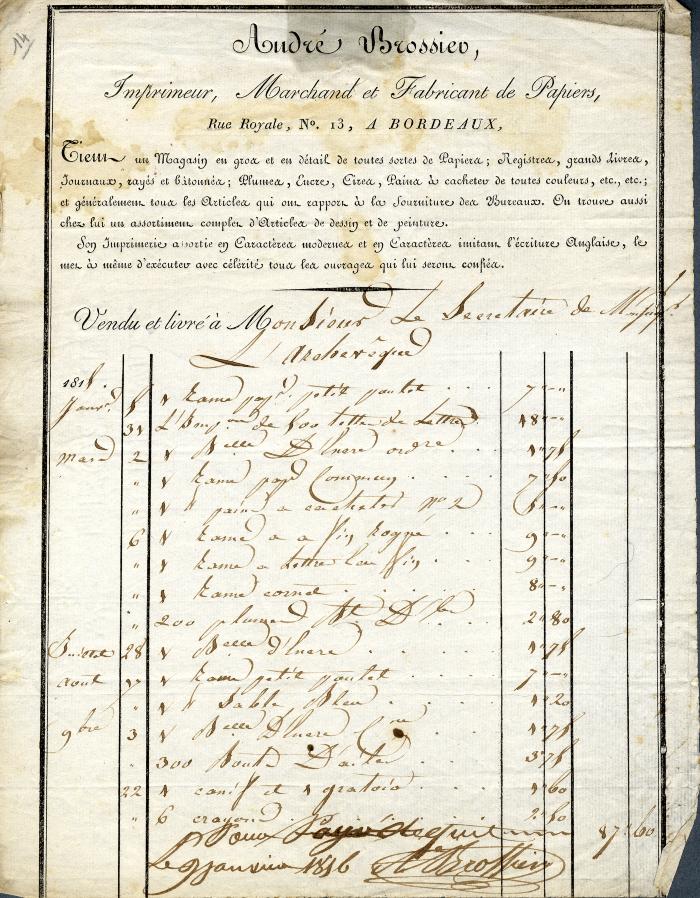 14
André Brossier,
Imprimeur, Marchand et Fabricant de Papiers,
Rue Royale, No. 13, A BORDEAUX,
Tient un Magasin en gros et en détail de toutes sortes de Papiers ; Registres, grands Livres,
Journaux, rayés et bâtonnés ; Plumes, Encre, Cires, Pains à cacheter de toutes couleurs, etc., etc. ;
et généralement tous les Articles qui ont rapport à la Fourniture des Bureaux. On trouve aussi
chez lui un assortiment complet d'Articles de dessin et de peinture.
Son Imprimerie assortie en Caractères modernes et en Caractères imitant l'écriture Anglaise, le
met à même d'exécuter avec célérité tous les ouvrages qui lui seront confiés.
Vendu et livré à Monsieur Le Secretaire de
L'Archevêque
1815.
Janvr. 5 1 Rame papr. petit poulet . . . 7 "-"
31 L'Impon de 500 têtes de Lettres . 18 "-"
Mars 2 1 Belle D'Encre ordre . . . 1 "75
" 1 Rame papr Commun . . . 7 "50
" 1 " pains a cacheter No 2 5 "-"
6 1 Rame fin Rogné . . . 9 "-"
" 1 Rame a Lettre fin . . . 9 "-"
" 1 Rame cornet . . . 8 "-"
" 200 plumes . . . 2 "80
Juillet 28 1 Belle d'Encre . . . 1 "75
Aout 1 Rame petit poulet . . . 7 "-"
" 1 " Sable Bleu . . . 1 "20
9bre 3 1 Belle D'Encre . . . 1 "75
" 300 Bouts D'ailes . . . 3 "75
22 1 canif et 1 gratoir . . . 1 "60
" 6 crayons . . . 2 "50
Pour acquit 87 "60
Le 9 Janvier 1816 Ae Brossier